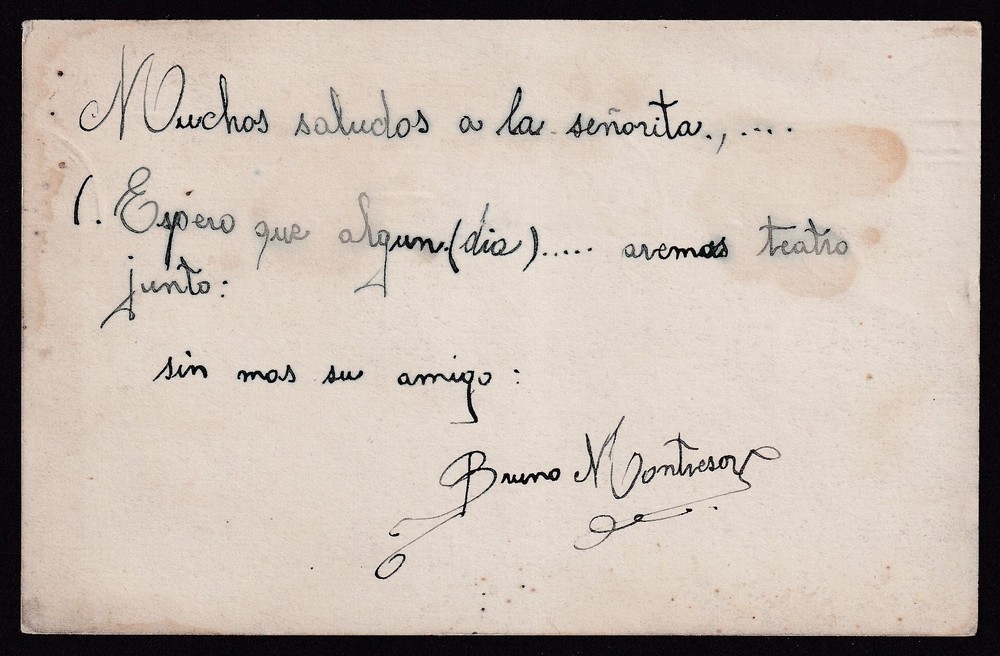 Muchos saludos a la señorita.,....
(. Espero que algun.(dia)..... aremos teatro
junto:
sin mas su amigo:
Bruno Montresor